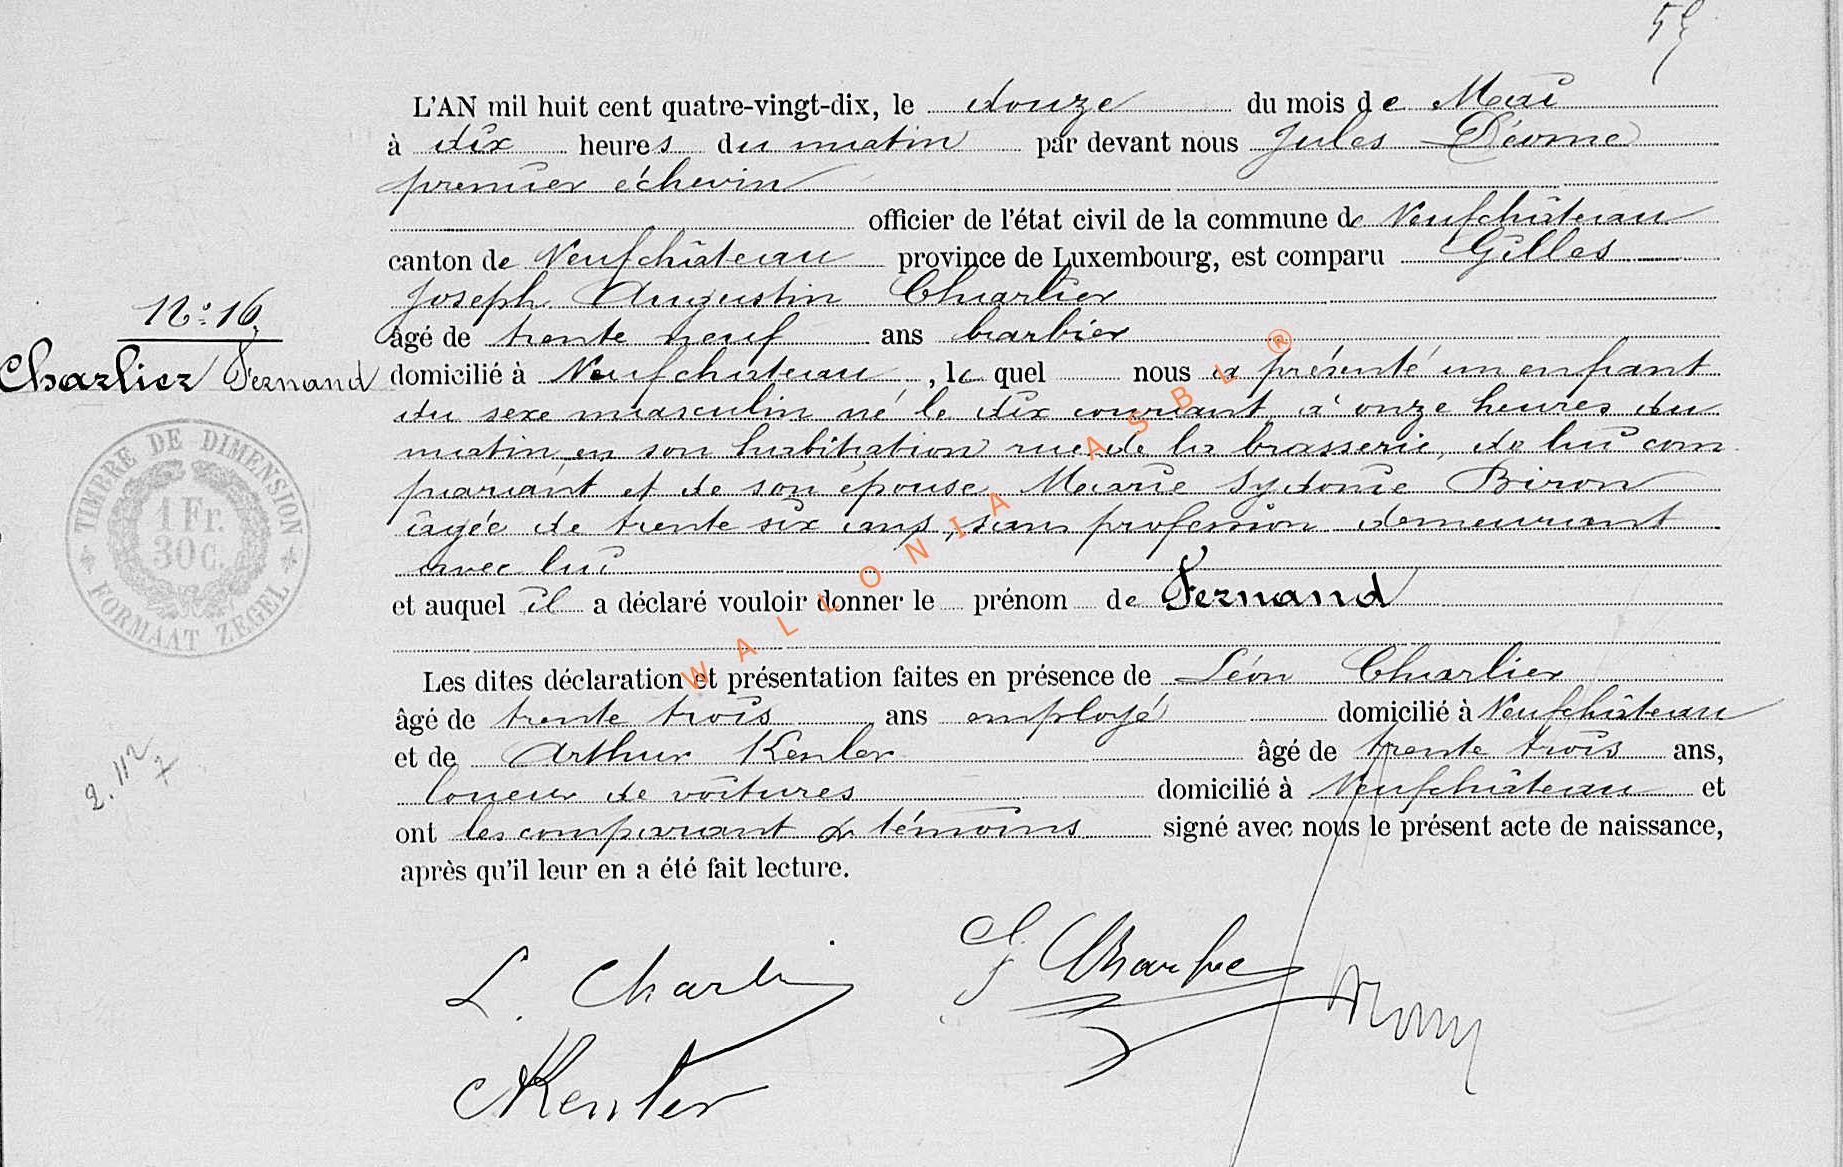 57
L'AN mil huit cent quatre-vingt-dix, le douze du mois de Mai
à dix heures du matin par devant nous Jules Déome
premier échevin
officier de l'état civil de la commune de Neufchâteau
canton de Neufchâteau province de Luxembourg, est comparu Gilles
Joseph Augustin Charlier
N° 16
âgé de trente neuf ans barbier
Charlier Fernand
domicilié à Neufchateau, lequel nous a présenté un enfant
du sexe masculin né le dix courant à onze heures du
matin en son habitation rue de la brasserie, de lui com
parant et de son épouse Marie Sydonie Biron
âgée de trente six ans, sans profession demeurant
avec lui
et auquel il a déclaré vouloir donner le prénom de Fernand
TIMBRE DE DIMENSION
1 Fr.
30 c.
FORMAAT ZEGEL
Les dites déclaration et présentation faites en présence de Léon Charlier
âgé de trente trois ans employé domicilié à Neufchâteau
et de Arthur Kenler âgé de trente trois ans,
loueur de voitures domicilié à Neufchâteau et
ont les comparant & témoins signé avec nous le présent acte de naissance,
après qu'il leur en a été fait lecture.
2. 112
7
L. Charlier
G Charlier
Kenler
WALLONIA ASBL ®